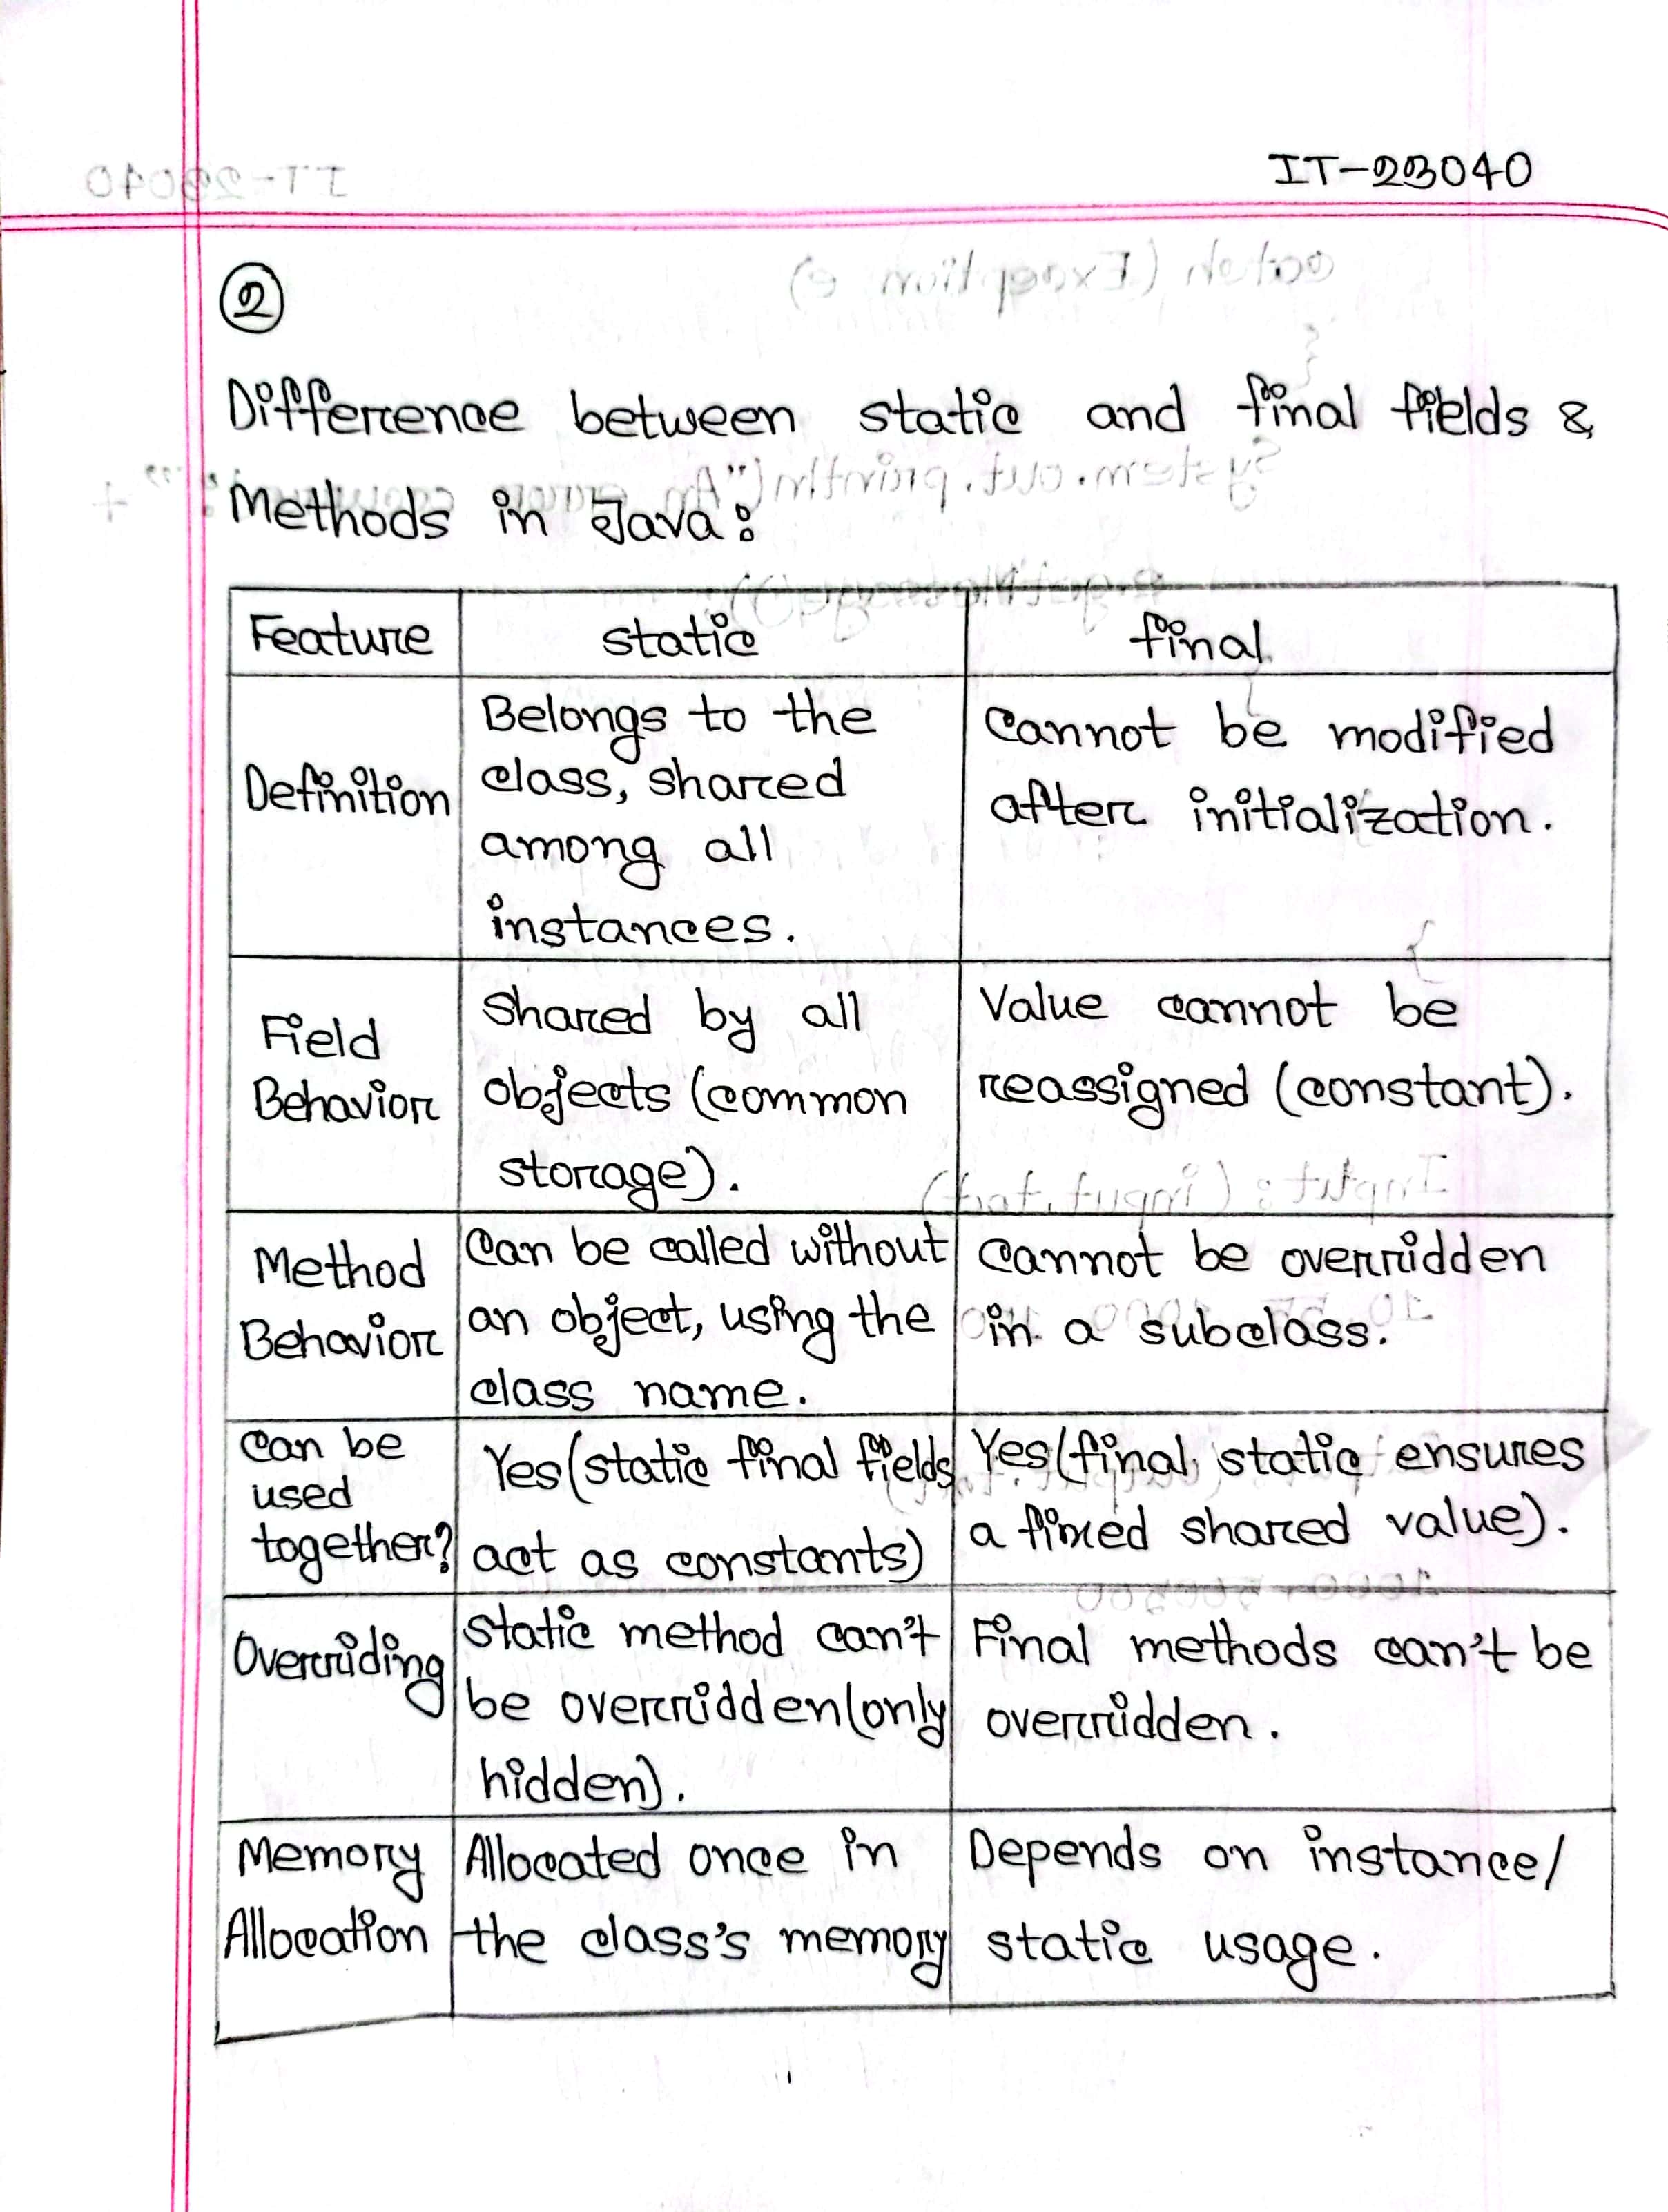 IT-23040
2
Difference between static and final fields &
Methods in Java:
Feature static final
Definition
Belongs to the
class, shared
among all
instances.
Cannot be modified
after initialization.
Field
Behavior
Shared by all
objects (common
storage).
Value cannot be
reassigned (constant).
Method
Behavior
Can be called without
an object, using the
class name.
Cannot be overridden
in a subclass.
Can be
used
together?
Yes (static final fields
act as constants)
Yes (final static ensures
a fixed shared value).
Overriding
Static method can't
be overridden (only
hidden).
Final methods can't be
overridden.
Memory
Allocation
Allocated once in
the class's memory
Depends on instance/
static usage.